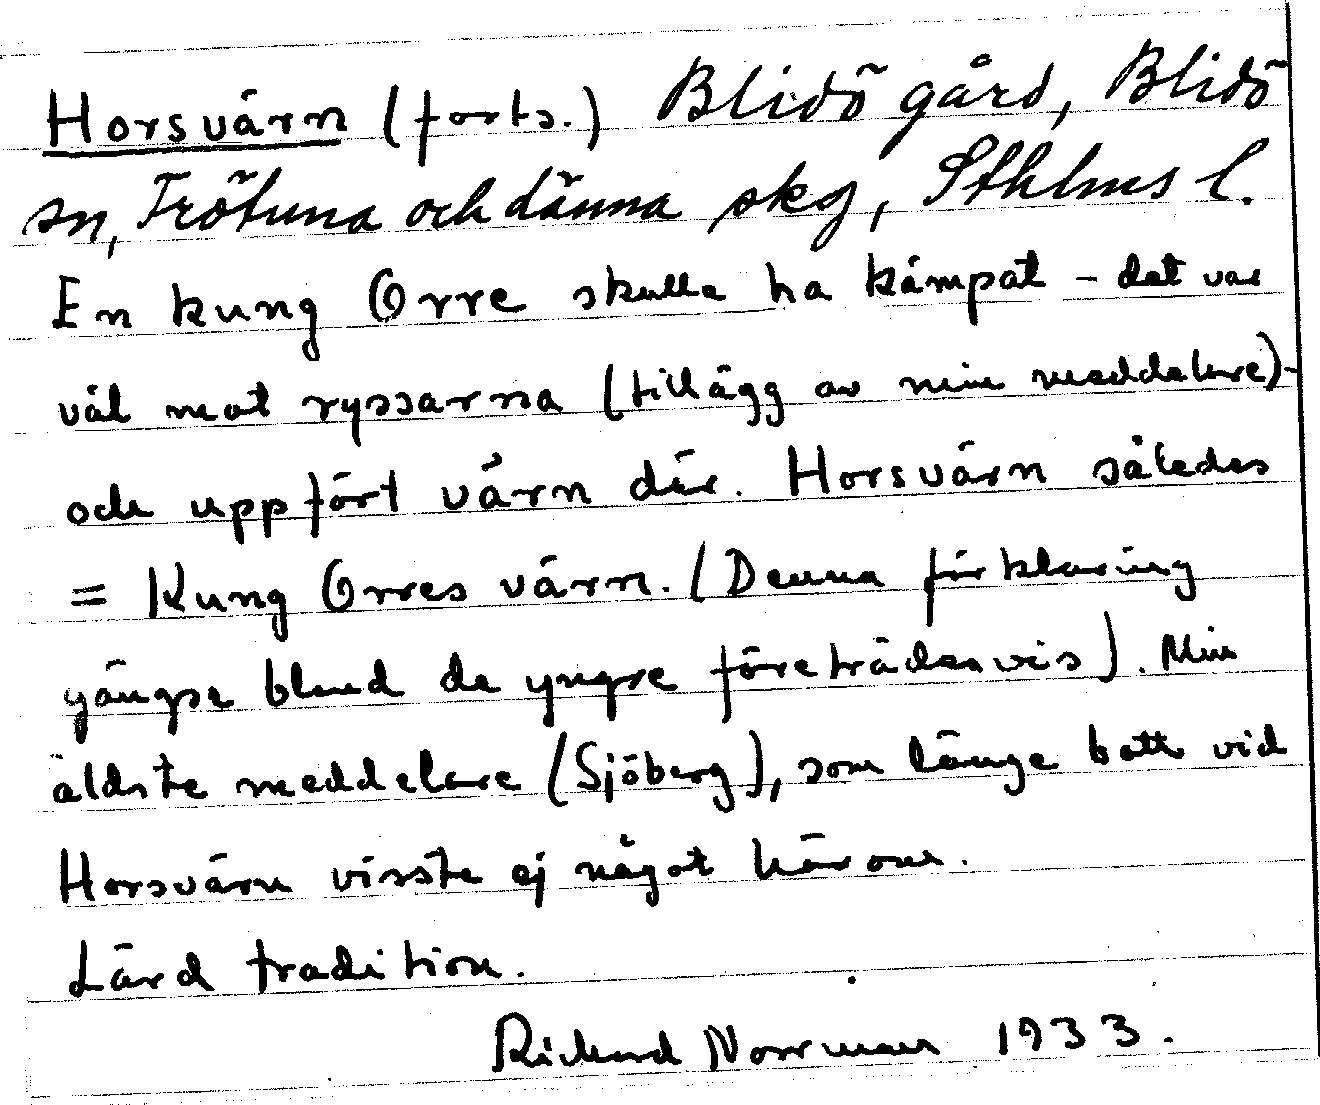 Horsvärn (forts.) Blidö gård, Blidö
sn, Frötuna och Länna skg, Sthlms l.
En kung Orre skulle ha kämpat – det var
väl mot ryssarna (tillägg av min meddelare)-
och uppfört värn där. Horsvärn således
= Kung Orres värn. (Denna förklaring
gängse bland de yngre företrädesvis). Min
äldste meddelare (Sjöberg), som länge bott vid
Horsvärn visste ej något härom.
Lärd tradition.
Rickard Norrman 1933.